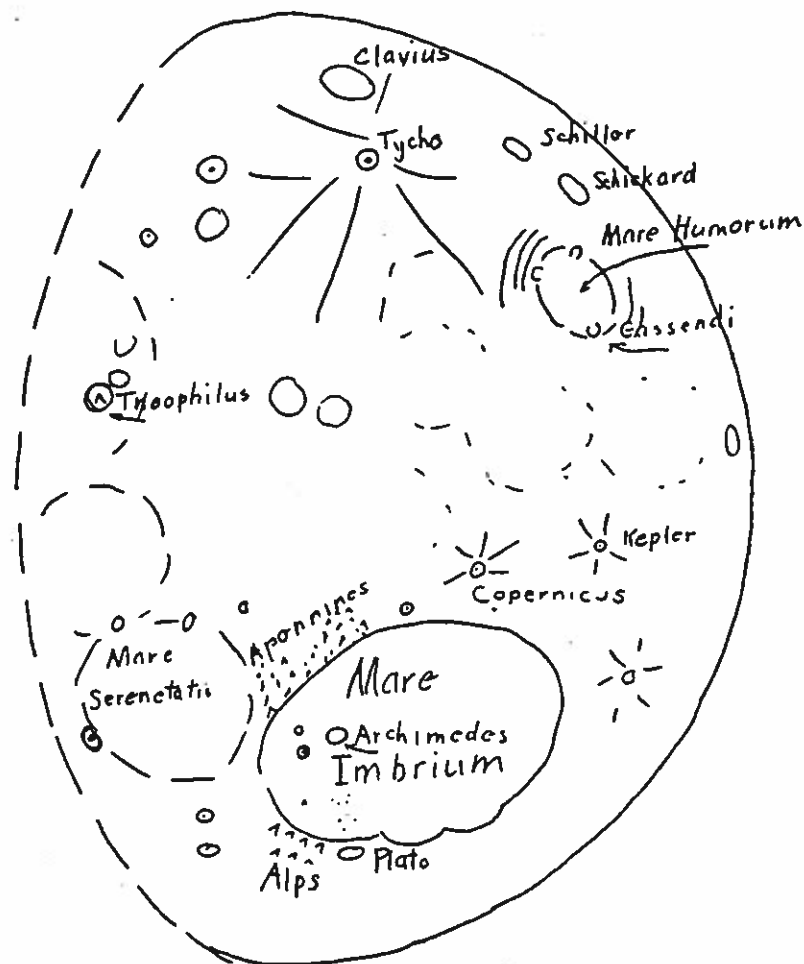 Clavius
Tycho
Schiller
Schickard
Mare Humorum
Gassendi
Theophilus
Kepler
Copernicus
Apennines
Mare
Serenetatis
Mare
Archimedes
Imbrium
Plato
Alps